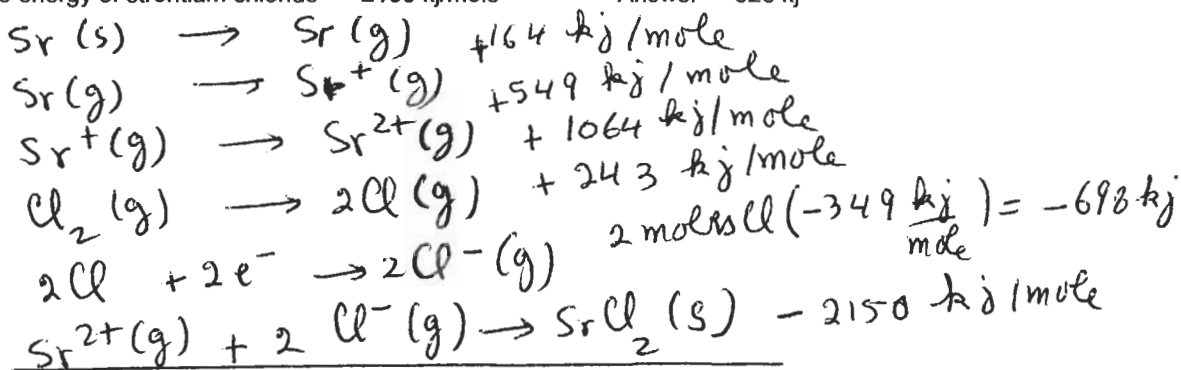 Sr (s) → Sr (g) +164 kj/mole
Sr (g) → Sr+ (g) +549 kj/mole
Sr+ (g) → Sr2+ (g) + 1064 kj/mole
Cl2 (g) → 2Cl (g) + 243 kj/mole
2Cl + 2e- → 2Cl- (g) 2 moles Cl (-349 kj/mole) = -698 kj
Sr2+ (g) + 2 Cl- (g) → SrCl2 (s) - 2150 kj/mole